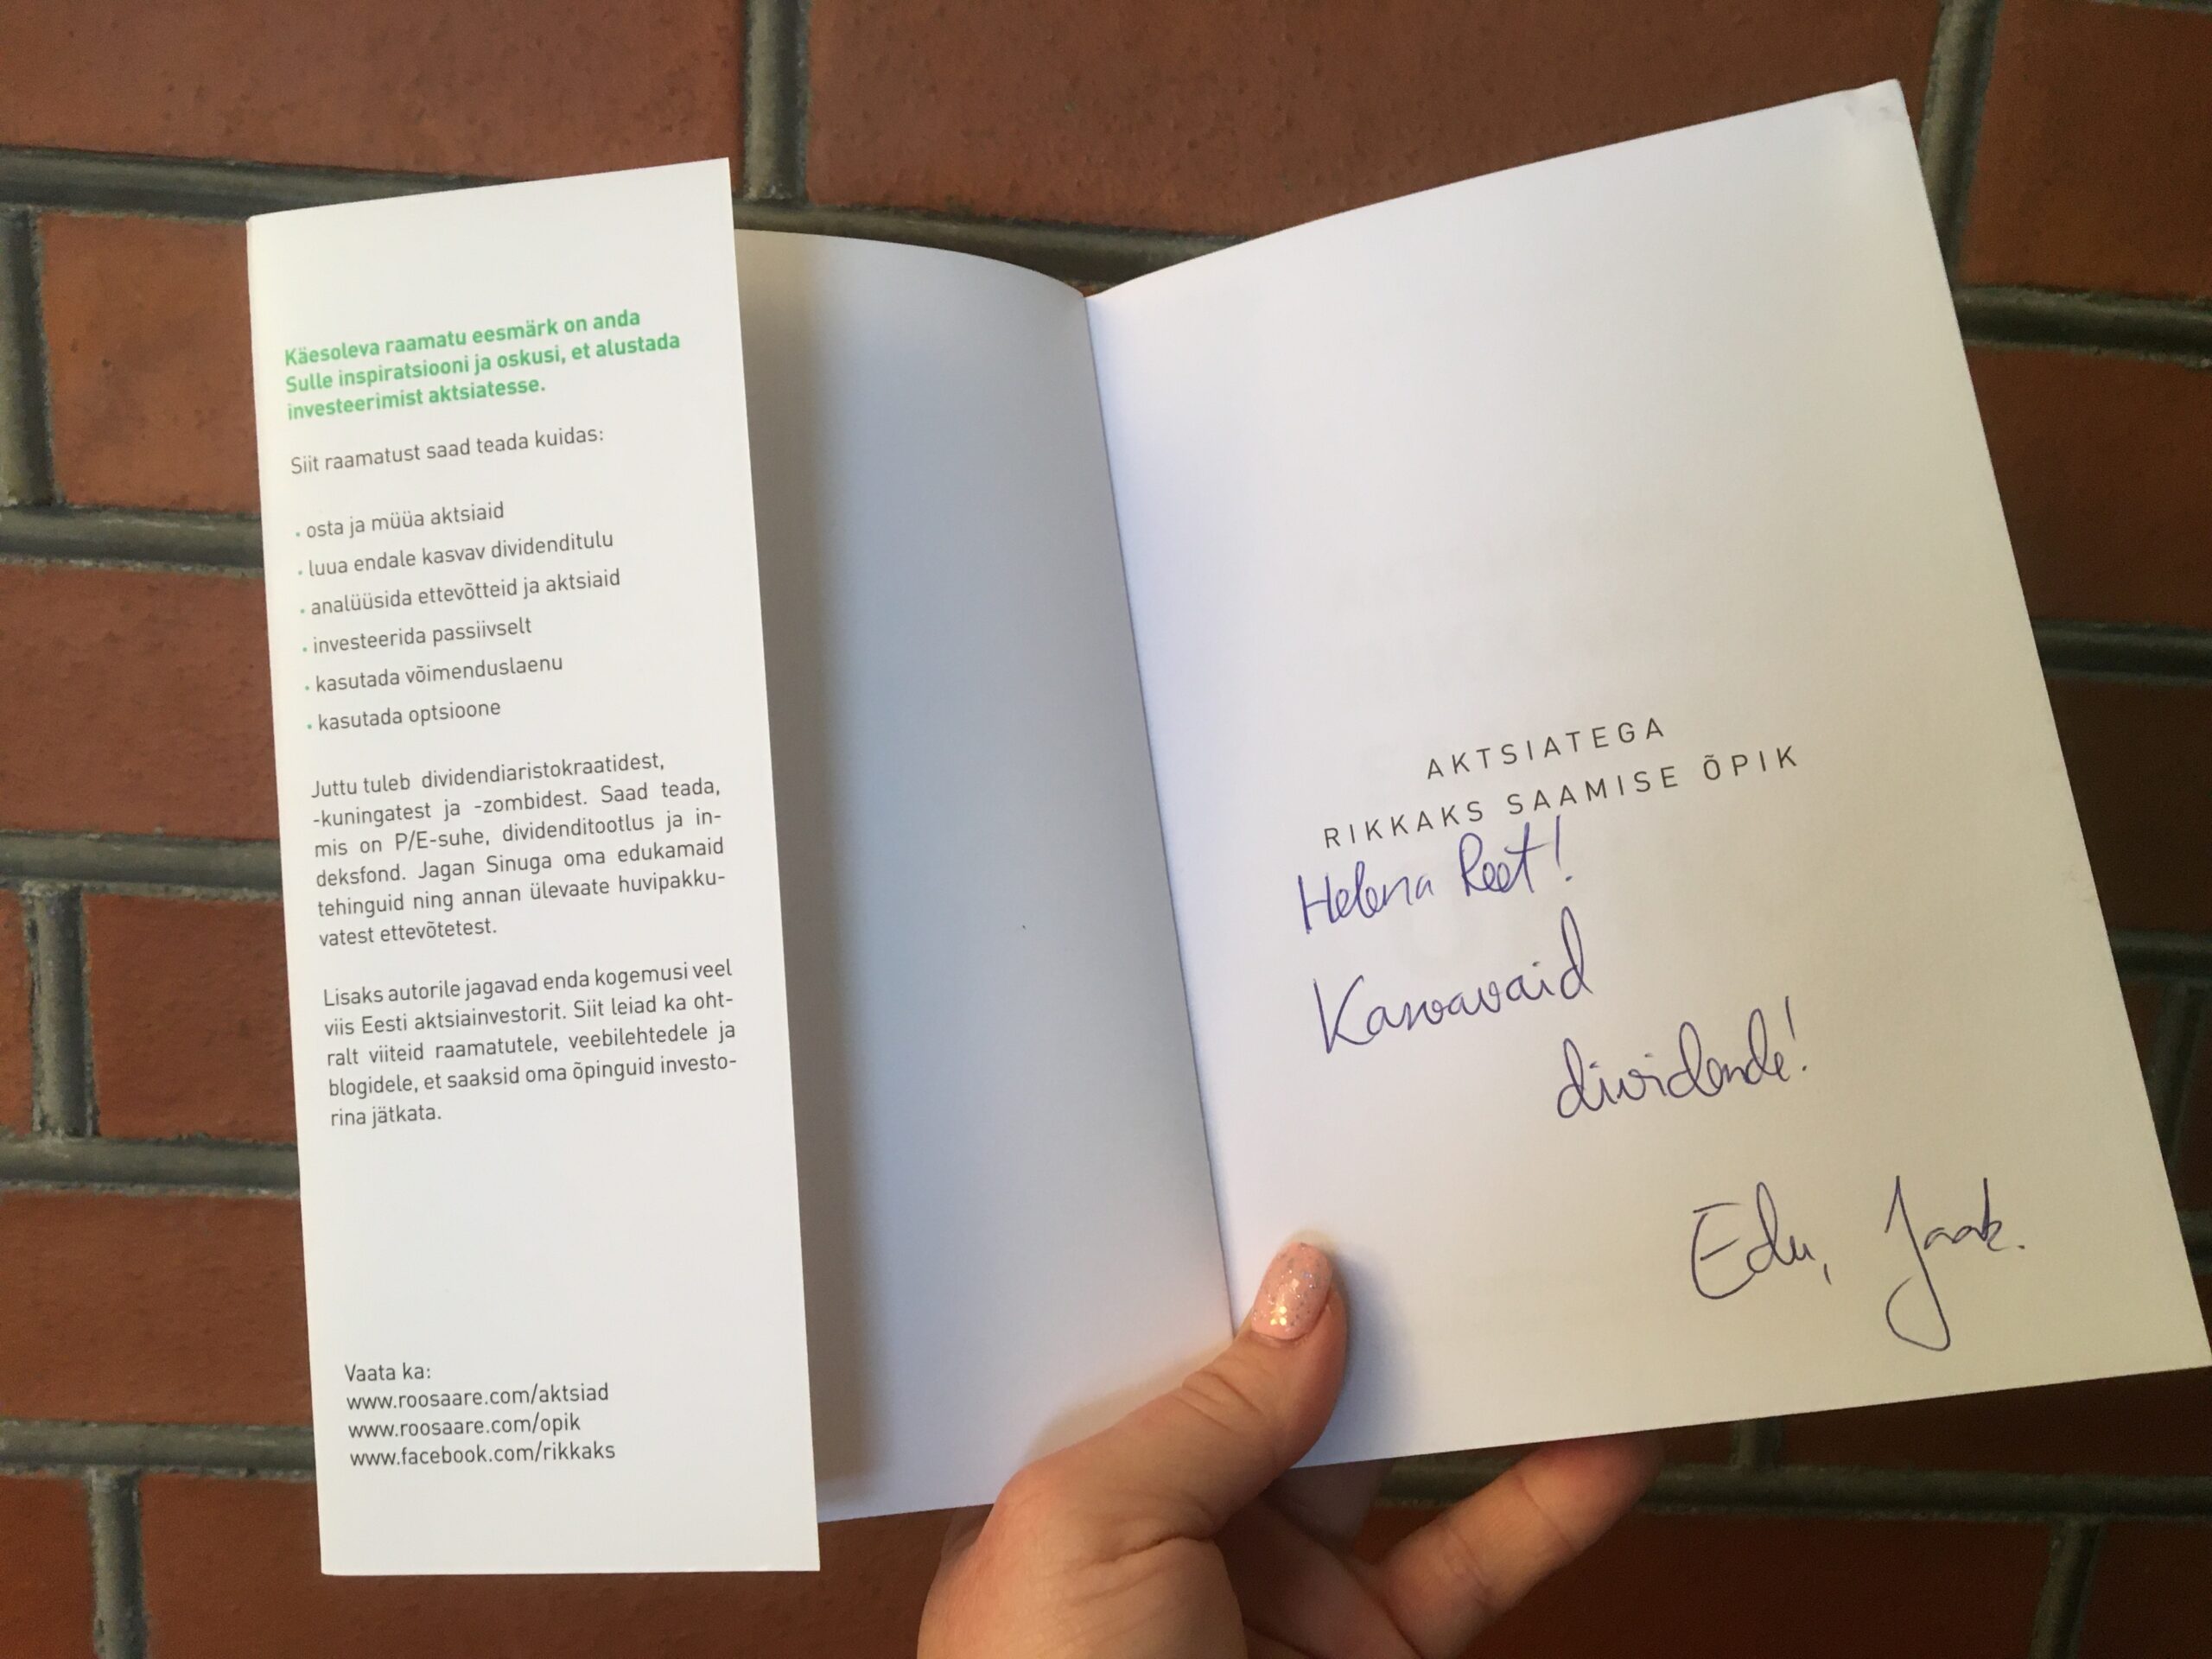 Käesoleva raamatu eesmärk on anda
Sulle inspiratsiooni ja oskusi, et alustada
investeerimist aktsiatesse.
Siit raamatust saad teada kuidas:
· osta ja müüa aktsiaid
· luua endale kasvav dividenditulu
· analüüsida ettevõtteid ja aktsiaid
· investeerida passiivselt
· kasutada võimenduslaenu
· kasutada optsioone
Juttu tuleb dividendiaristokraatidest,
-kuningatest ja -zombidest. Saad teada,
mis on P/E-suhe, dividenditootlus ja in-
deksfond. Jagan Sinuga oma edukamaid
tehinguid ning annan ülevaate huvipakku-
vatest ettevõtetest.
Lisaks autorile jagavad enda kogemusi veel
viis Eesti aktsiainvestorit. Siit leiad ka oht-
ralt viiteid raamatutele, veebilehtedele ja
blogidele, et saaksid oma õpinguid investo-
rina jätkata.
Vaata ka:
www.roosaare.com/aktsiad
www.roosaare.com/opik
www.facebook.com/rikkaks
AKTSIATEGA
RIKKAKS SAAMISE ÕPIK
Helena Reet!
Kasvavaid
dividende!
Edu, Jaak.